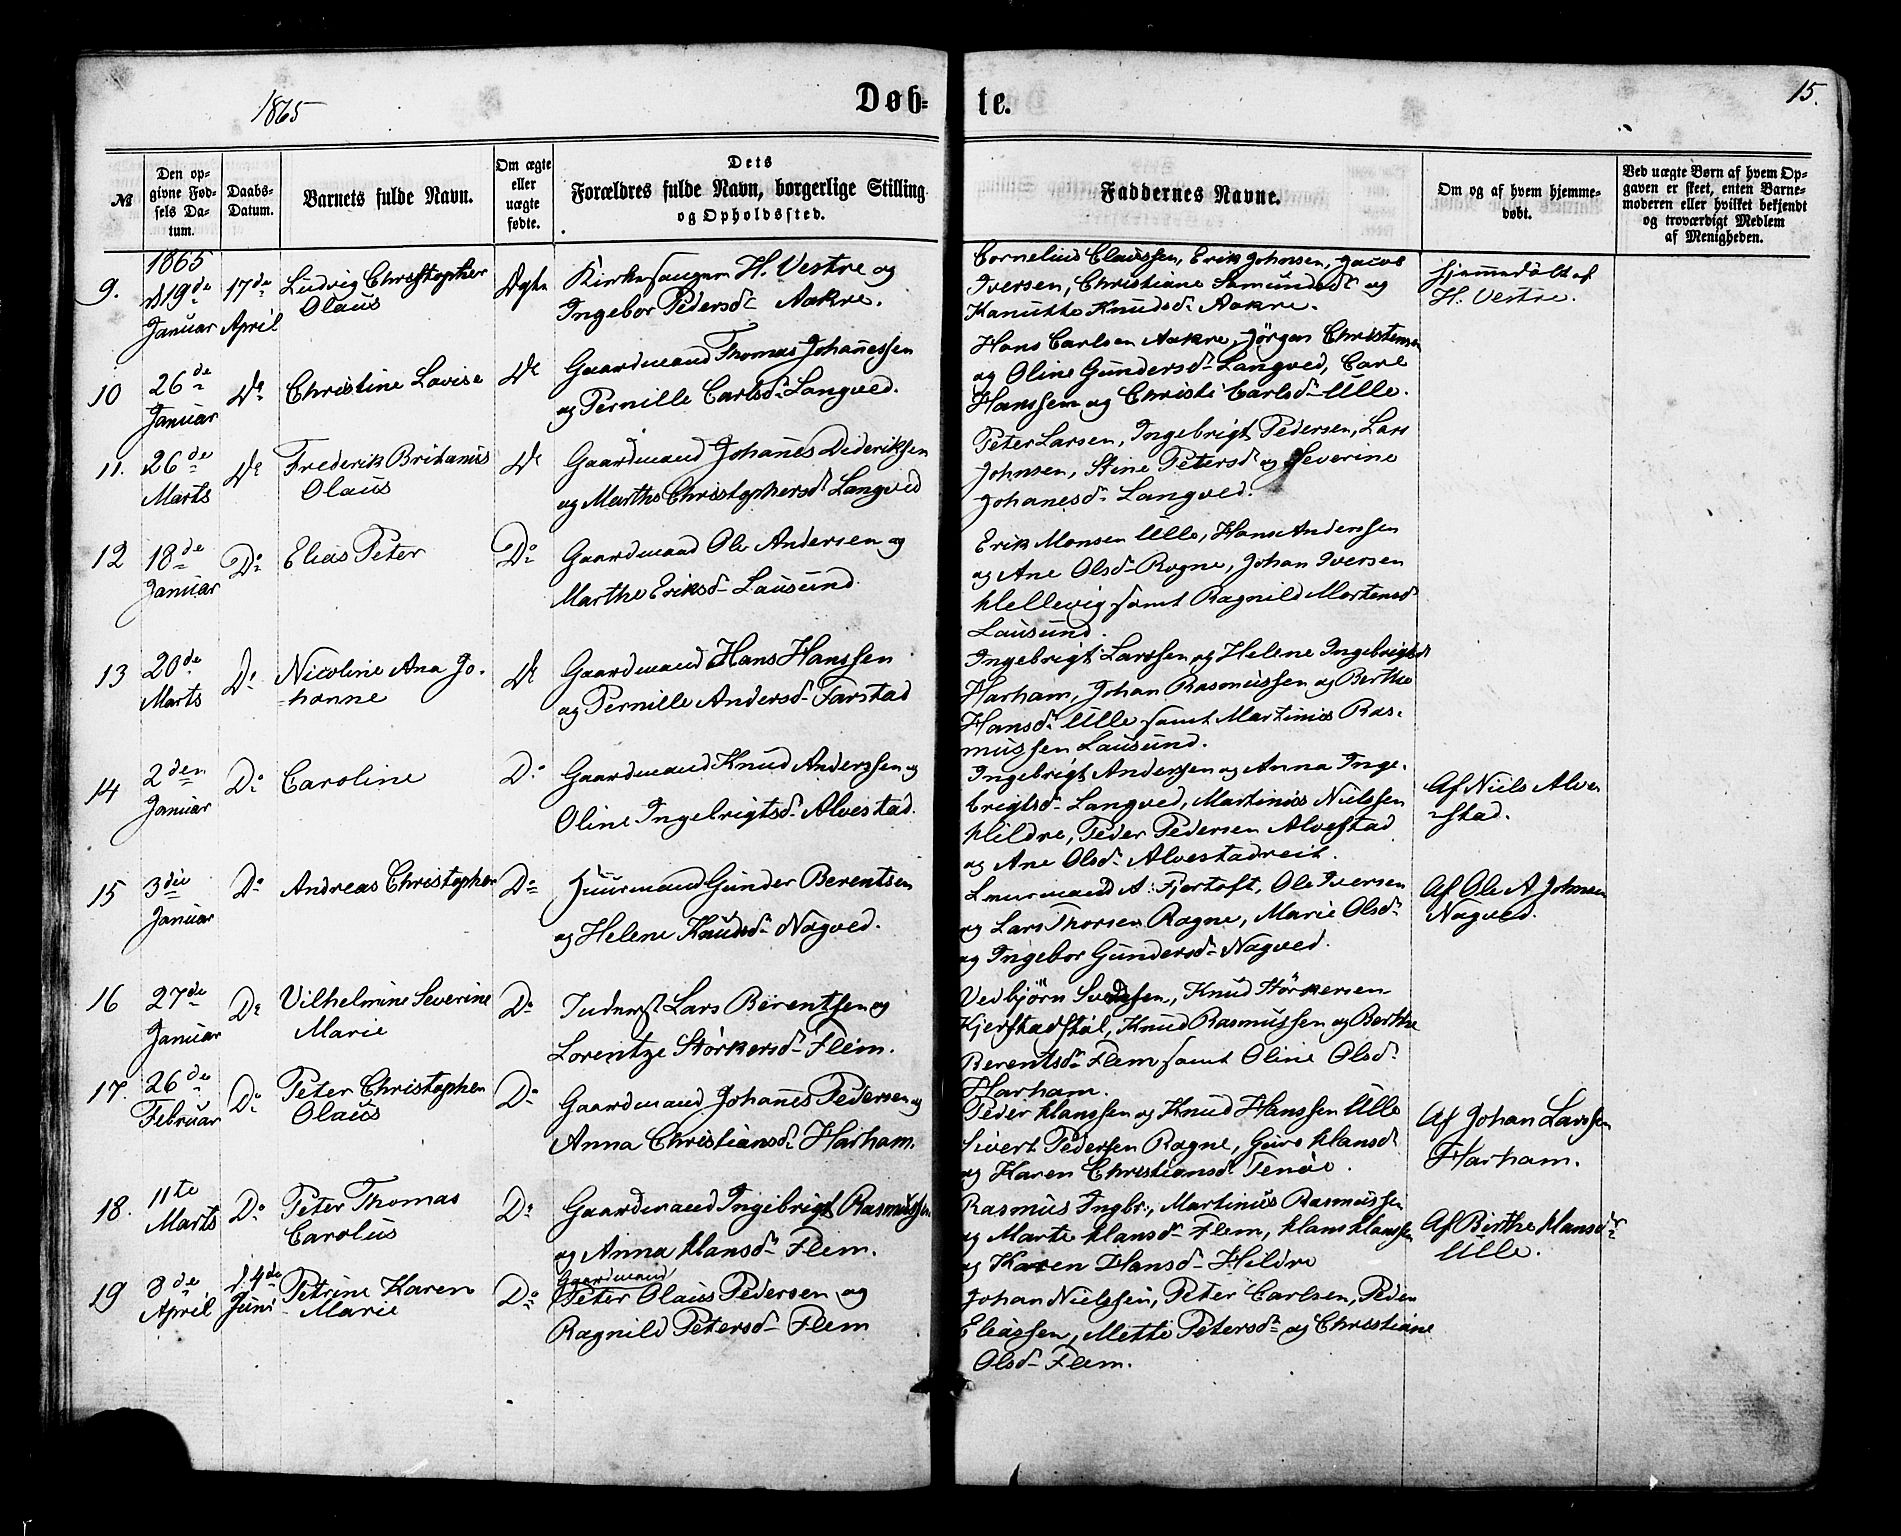 1865
Døb-
te.
15.
№
Den op-
givne Fød-
sels Da-
tum.
Daabs-
Datum.
Barnets fulde Navn.
Om ægte
eller
uægte
fødte.
Dets
Forældres fulde Navn, borgerlige Stilling
og Opholdssted.
Faddernes Navne.
Om og af hvem hjemme-
døbt.
Ved uægte Børn af hvem Op-
gaven er skeet, enten Barne-
moderen eller hvilket bekjendt
og troværdigt Medlem
af Menigheden.
1865
9.
19de
Januar
17de
April
Ludvig Christopher
Olaus
Ægte
Kirkesanger H. Vestre og
Ingebor Pedersd. Aakre.
Cornelius Claussen, Erik Johnsen, Jacob
Iversen, Christiane Samundsd. og
Kanutte Knudsd. Aakre.
Hjemmedøbt af
H. Vestre.
10
26de
Januar
Do
Christine Lovise
Do
Gaardmand Thomas Johanessen
og Pernille Carlsd. Langved.
Hans Carlsen Aakre, Jørgen Christensen
og Oline Gundersd. Langved, Carl
Hanssen og Christi Carlsd. Ulle.
11.
26de
Marts
Do
Frederik Britanus
Olaus
Do
Gaardmand Johanes Dideriksen
og Marthe Christophersd. Langved
Peter Larsen, Ingebrigt Pedersen, Lars
Johnsen, Stine Petersd. og Severine
Johanesd. Langved.
12
18de
Januar
Do
Elias Peter
Do
Gaardmand Ole Andersen og
Marthe Eriksd. Lausund.
Erik Monsen Ulle, Hans Anderssen
og Ane Olsd. Rogne, Johan Iversen
Hellevig samt Ragnild Mortensd.
Lausund.
13
20de
Marts
Do
Nicoline Ana Jo-
hanne
Do
Gaardmand Hans Hanssen
og Pernille Andersd. Farstad
Ingebrigt Larssen og Helene Ingebrigtsd.
Harham, Johan Rasmussen og Berthe
Hansd. Ulle samt Martinus Ras-
mussen Lausund.
14
2den
Januar
Do
Caroline
Do
Gaardmand Knud Anderssen og
Oline Ingebrigtsd. Alvestad.
Ingebrigt Anderssen og Anna Inge-
brigtsd. Langved, Martinus Nielssen
Hildre, Peder Pedersen Alvestad
og Ane Olsd. Alvestadreit.
Af Niels Alve-
stad.
15
3die
Januar
Do
Andreas Christopher
Do
Huusmand Gunder Berentsen
og Helene Knudsd. Nogved.
A. Fjertoft, Ole Iversen
og Lars Thorsen Rogne, Marie Olsd.
og Ingebor Gundersd. Nogved.
Af Ole A Johnsen
Nogved.
16
27de
Januar
Do
Vilhelmine Severine
Marie
Do
Inderst Lars Berentsen og
Lorentze Størkersd. Flem.
Vedbjørn Svendsen, Knud Størkersen
Kjerstadstøl, Knud Rasmussen og Berthe
Berentsd. Flem samt Oline Olsd.
Harham.
17.
26de
Februar
Do
Peter Christopher
Olaus
Do
Gaardmand Johanes Pedersen og
Anna Christiansd. Harham.
Peder Hanssen og Knud Hanssen Ulle
Sivert Pedersen Rogne, Guro Hansd.
og Karen Christiansd. Tenøe.
Af Johan Larssen
Harham.
18.
11te
Marts
Do
Peter Thomas
Carolus
Do
Gaardmand Ingebrigt Rasmussen
og Anna Hansd. Flem.
Rasmus Ingbr., Martinus Rasmussen
og Marte Hansd. Flem, Hans Hanssen
og Karen Hansd. Hildre
Af Birthe Hansd.
Ulle.
19
8de
April
14de
Juni
Petrine Karen
Marie
Do
Gaardmand
Peter Olaus Pedersen og
Ragnild Petersd. Flem
Johan Nielssen, Peter Carlsen, Peder
Eliassen, Mette Petersd. og Christiane
Olsd. Flem.